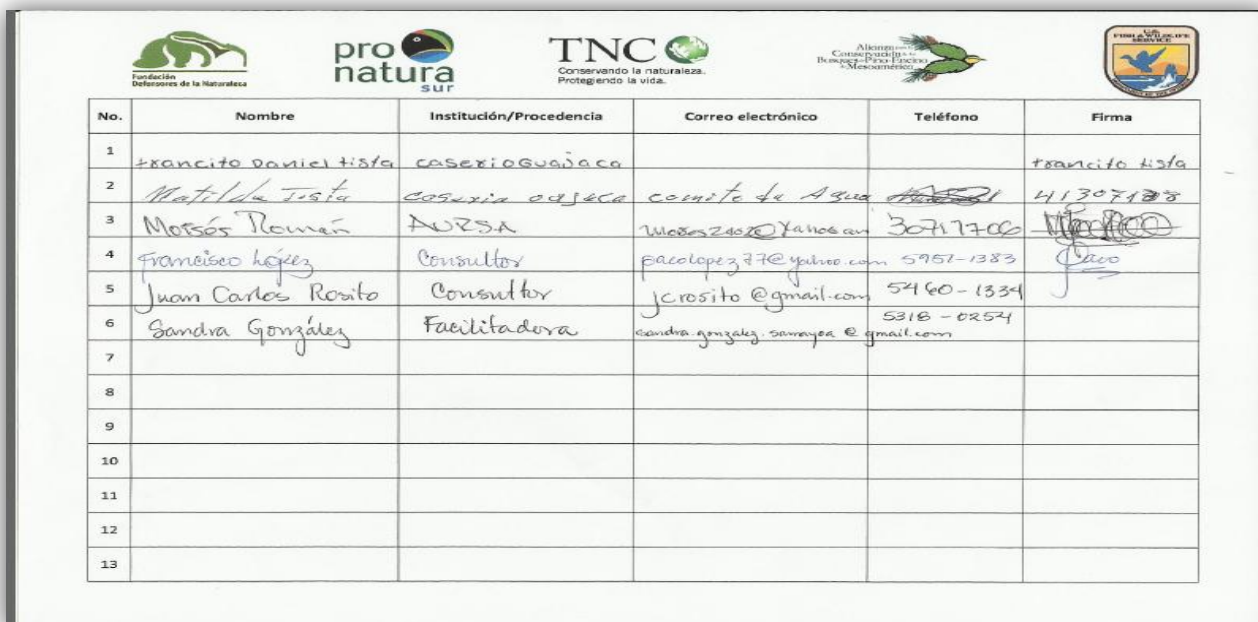 Fundación
Defensores de la Naturaleza
pro
natura
sur
TNC
Conservando la naturaleza.
Protegiendo la vida.
Alianza para la
Conservación de los
Bosques de Pino-Encino
de Mesoamérica
U.S.
FISH & WILDLIFE
SERVICE
No. Nombre Institución/Procedencia Correo electrónico Teléfono Firma
1 trancito Daniel tista caserio Guajaca trancito tista
2 Matilda Tista comite de Agua
3 Moisés Román 30717706
4 Francisco López Consultor pacolopez77@yahoo.com 5951-1383 Paco
5 Juan Carlos Rosito Consultor jcrosito@gmail.com 5460-1334
6 Sandra González Facilitadora sandra.gonzalez.samayoa@gmail.com 5318-0254
7
8
9
10
11
12
13